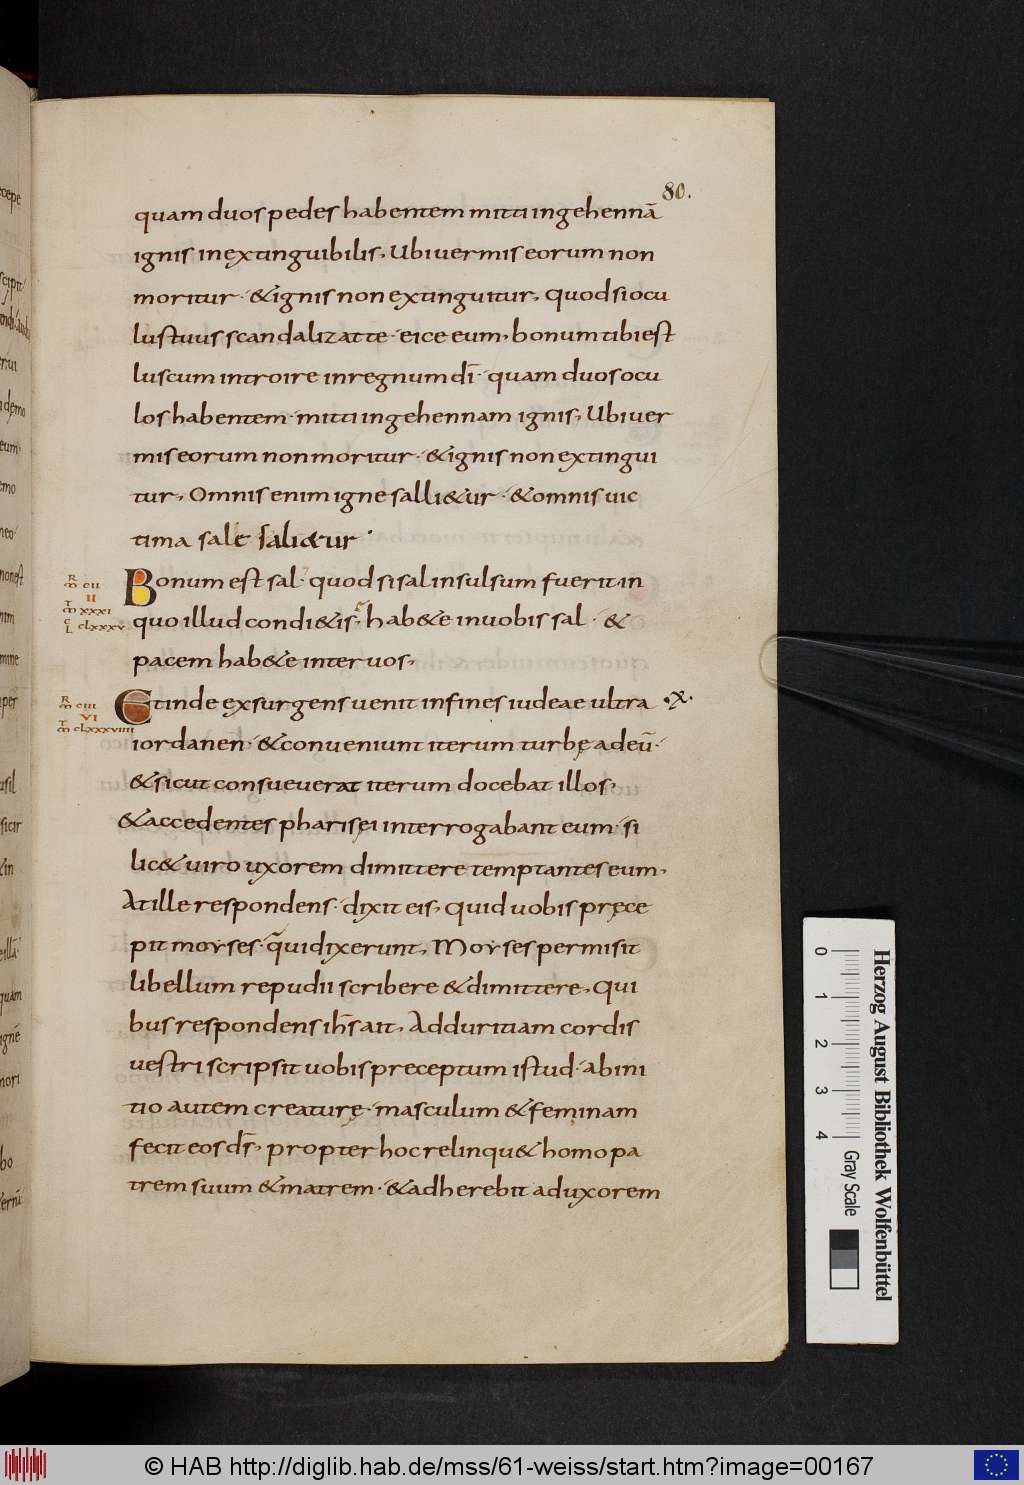 80.
quam duos pedes habentem mitti in gehennā
ignis inextinguibilis, Ubi vermis eorum non
moritur · & ignis non extinguitur, quod si ocu
lus tuus scandalizat te · eice eum, bonum tibi est
luscum introire in regnum dī · quam duos ocu
los habentem · mitti in gehennam ignis, Ubi ver
mis eorum non moritur · & ignis non extingui
tur, Omnis enim igne salli&ur · & omnis uic
tima sale sali&ur ·
R m CII
II
T m XXXI
C L CLXXXV
Bonum est sal · quod si sal insulsum fuerit in
quo illud condi&is, hab&e in uobis sal · &
pacem hab&e inter uos,
R m CIII
VI
T m CLXXXVIIII
Et inde exsurgens uenit in fines iudeae ultra ·X·
iordanen · & conveniunt iterum turbę ad eū ·
& sicut consueverat iterum docebat illos,
& accedentes pharisęi interrogabant eum · si
lic& uiro uxorem dimittere temptantes eum,
At ille respondens · dixit eis, quid uobis pręce
pit moyses · qui dixerunt, Moyses permisit
libellum repudii scribere & dimittere, Qui
bus respondens ihs̄ ait, Ad duritiam cordis
vestri scripsit uobis preceptum istud · ab ini
tio autem creaturę · masculum & feminam
fecit eos ds̄, propter hoc relinqu& homo pa
trem suum & matrem · & adherebit ad uxorem
0 1 2 3 4
Gray Scale
Herzog August Bibliothek Wolfenbüttel
© HAB http://diglib.hab.de/mss/61-weiss/start.htm?image=00167